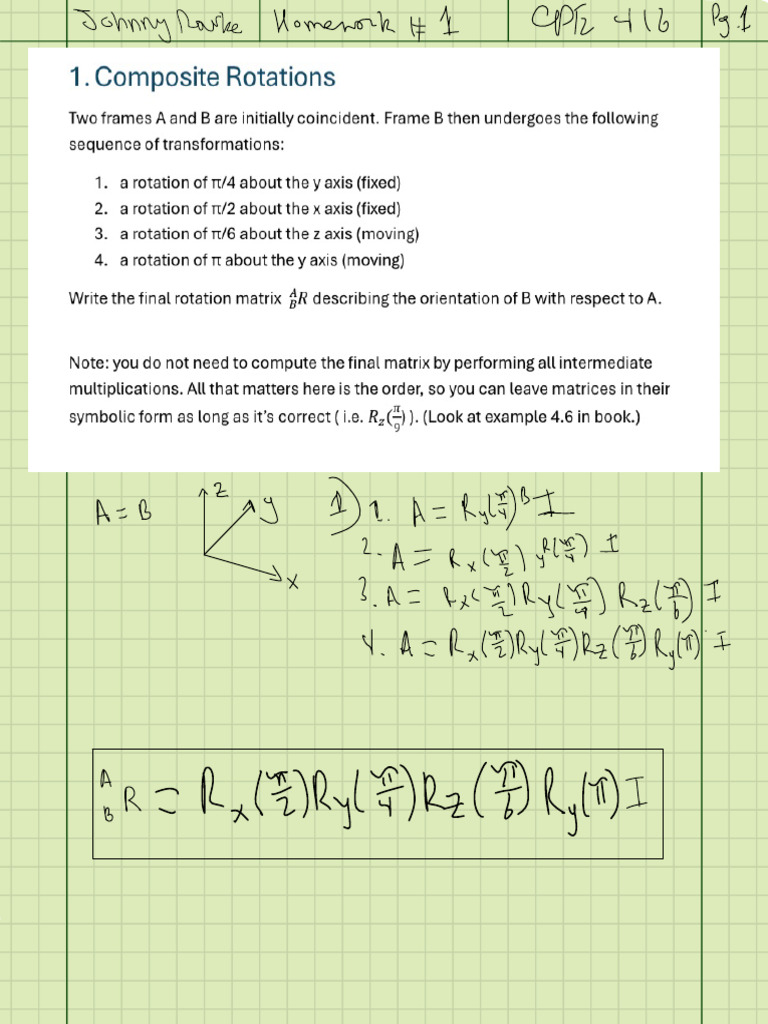 Johnny Rourke Homework # 1 CPTS 416 Pg. 1
1. Composite Rotations
Two frames A and B are initially coincident. Frame B then undergoes the following
sequence of transformations:
1. a rotation of π/4 about the y axis (fixed)
2. a rotation of π/2 about the x axis (fixed)
3. a rotation of π/6 about the z axis (moving)
4. a rotation of π about the y axis (moving)
Write the final rotation matrix ᴬ_B R describing the orientation of B with respect to A.
Note: you do not need to compute the final matrix by performing all intermediate
multiplications. All that matters here is the order, so you can leave matrices in their
symbolic form as long as it's correct ( i.e. R_z(π/9) ). (Look at example 4.6 in book.)
A = B
z
y
x
1) 1. A = R_y(π/4) ᴮI
2. A = R_x(π/2) R_y(π/4) I
3. A = R_x(π/2) R_y(π/4) R_z(π/6) I
4. A = R_x(π/2) R_y(π/4) R_z(π/6) R_y(π) I
ᴬ_B R = R_x(π/2) R_y(π/4) R_z(π/6) R_y(π) I